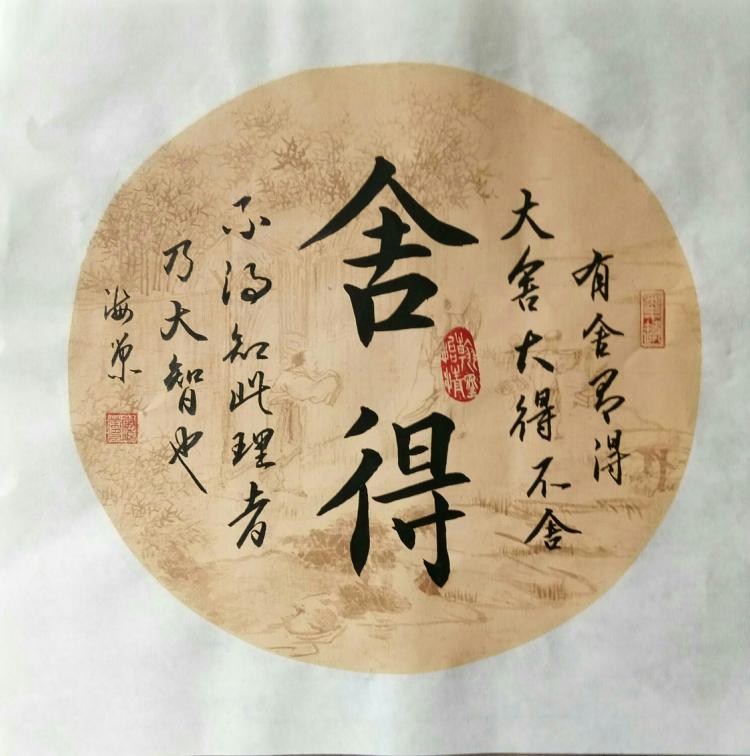 有舍有得
大舍大得不舍
舍得
翰墨情
不得知此理者
乃大智也
海